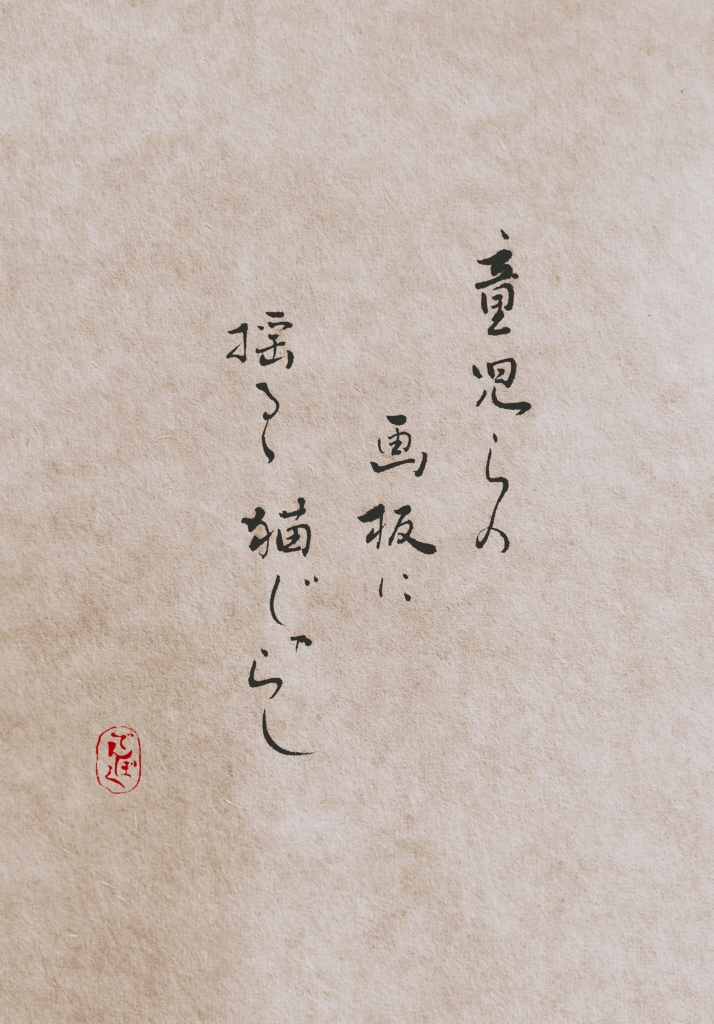 童児らの
画板に
揺るゝ猫じゃらし